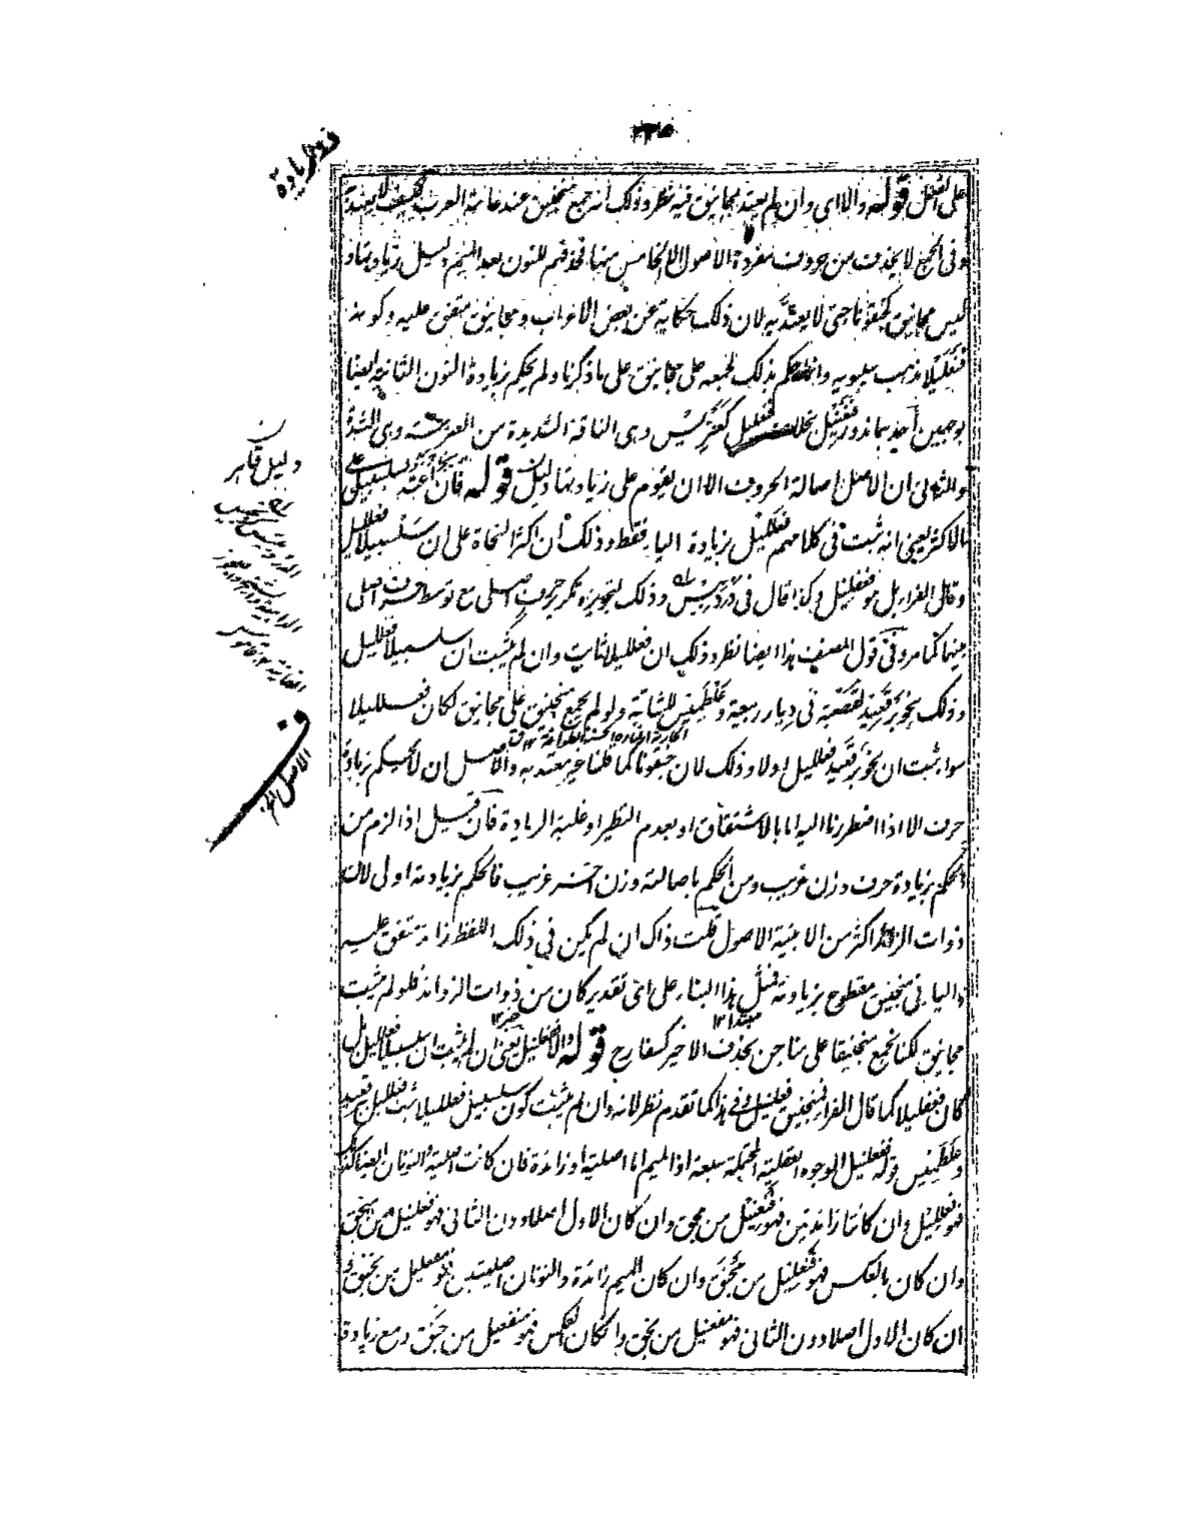 ذو الزيادة
على الفعل قوله والا اى وان لم يعتد بمجانيق فيه نظر وذلك انه جمع منجنيق عند عامة العرب فكيف لا يعتد به
وفى الجمع لا يحذف من حروف مفردة الاصول الا الخامس منها فحذفهم للنون بعد الميم دليل زيادتها و
ليس مجانيق كجنقونا حتى لا يعتد به لان ذلك حكاية عن بعض الاعراب ومجانيق متفق عليه وكونه
فنعليلا مذهب سيبويه وانما حكم بذلك لجمعه على مجانيق على ما ذكرنا ولم يحكم بزيادة النون الثانية ايضا
لوجهين احدهما ندور فنعنيل بخلاف فنعليل كعنتريس وهى الناقة الشديدة من العترسة وهى الشدة
والثانى ان الاصل اصالة الحروف الا ان يقوم على زيادتها دليل قوله فان اعتد بسلسبيل على
الاكثر يعنى انه ثبت فى كلامهم فعلليل بزيادة الياء فقط وذلك ان اكثر النحاة على ان سلسبيلا فعلليل
وقال الفراء بل هو فعفليل وكذا قال فى دردبيس وذلك لتجويزه تكرير حرف اصلى مع توسط حرف اصلى
بينهما كما مر وفى قول المصنف هذا ايضا نظر وذلك ان فعلليلا ثابت وان لم يثبت ان سلسبيلا فعلليل
وذلك بنحو برقعيد لقصبة فى ديار ربيعة وعلطميس للشابة ولو لم يجمع منجنيق على مجانيق لكان فعلليلا
سواء ثبت ان نحو برقعيد فعلليل اولا وذلك لان جنقونا كما قلنا غير معتد به والاصل ان لا يحكم بزيادة
حرف الا اذا اضطررنا اليه اما بالاشتقاق او بعدم النظير او غلبة الزيادة فان قيل اذا لزم من
الحكم بزيادة حرف وزن غريب ومن الحكم باصالته وزن اخر غريب فالحكم بزيادته اولى لان
ذوات الزوائد اكثر من الابنية الاصول قلت ذاك ان لم يكن فى ذلك اللفظ زائد متفق عليه
والياء فى منجنيق مقطوع بزيادته فمثل هذا البناء على اى تقدير كان من ذوات الزوائد فلو لم يثبت
مجانيق لكنا نجمع منجنيقا على مناجن بحذف الاخير كسفارج قوله والا فعلنيل يعنى ان لم يثبت ان سلسبيلا فعلليل بل
كان فعفليلا كما قال الفراء فمنجنيق فعلنيل وفى هذا كما تقدم نظر لانه وان لم يثبت كون سلسبيل فعلليلا ثبت فعلليل ببرقعيد
وعلطميس قوله ففعلنيل الوجوه العقلية المحتملة سبعة اذ الميم اما اصلية او زائدة فان كانت اصلية والنونان ايضا كذلك
فهو فعلليل وان كانتا زائدتين فهو فنعنيل من مجق وان كان الاول اصلا دون الثانى فهو فعلنيل من منجق
وان كان بالعكس فهو فنعليل من مجنق وان كان الميم زائدة والنونان اصليتين فهو مفعليل من نجنق و
ان كان الاول اصلا دون الثانى فهو مفعنيل من نجق وان كان بالعكس فهو منفعيل من جنق ومع زيادة